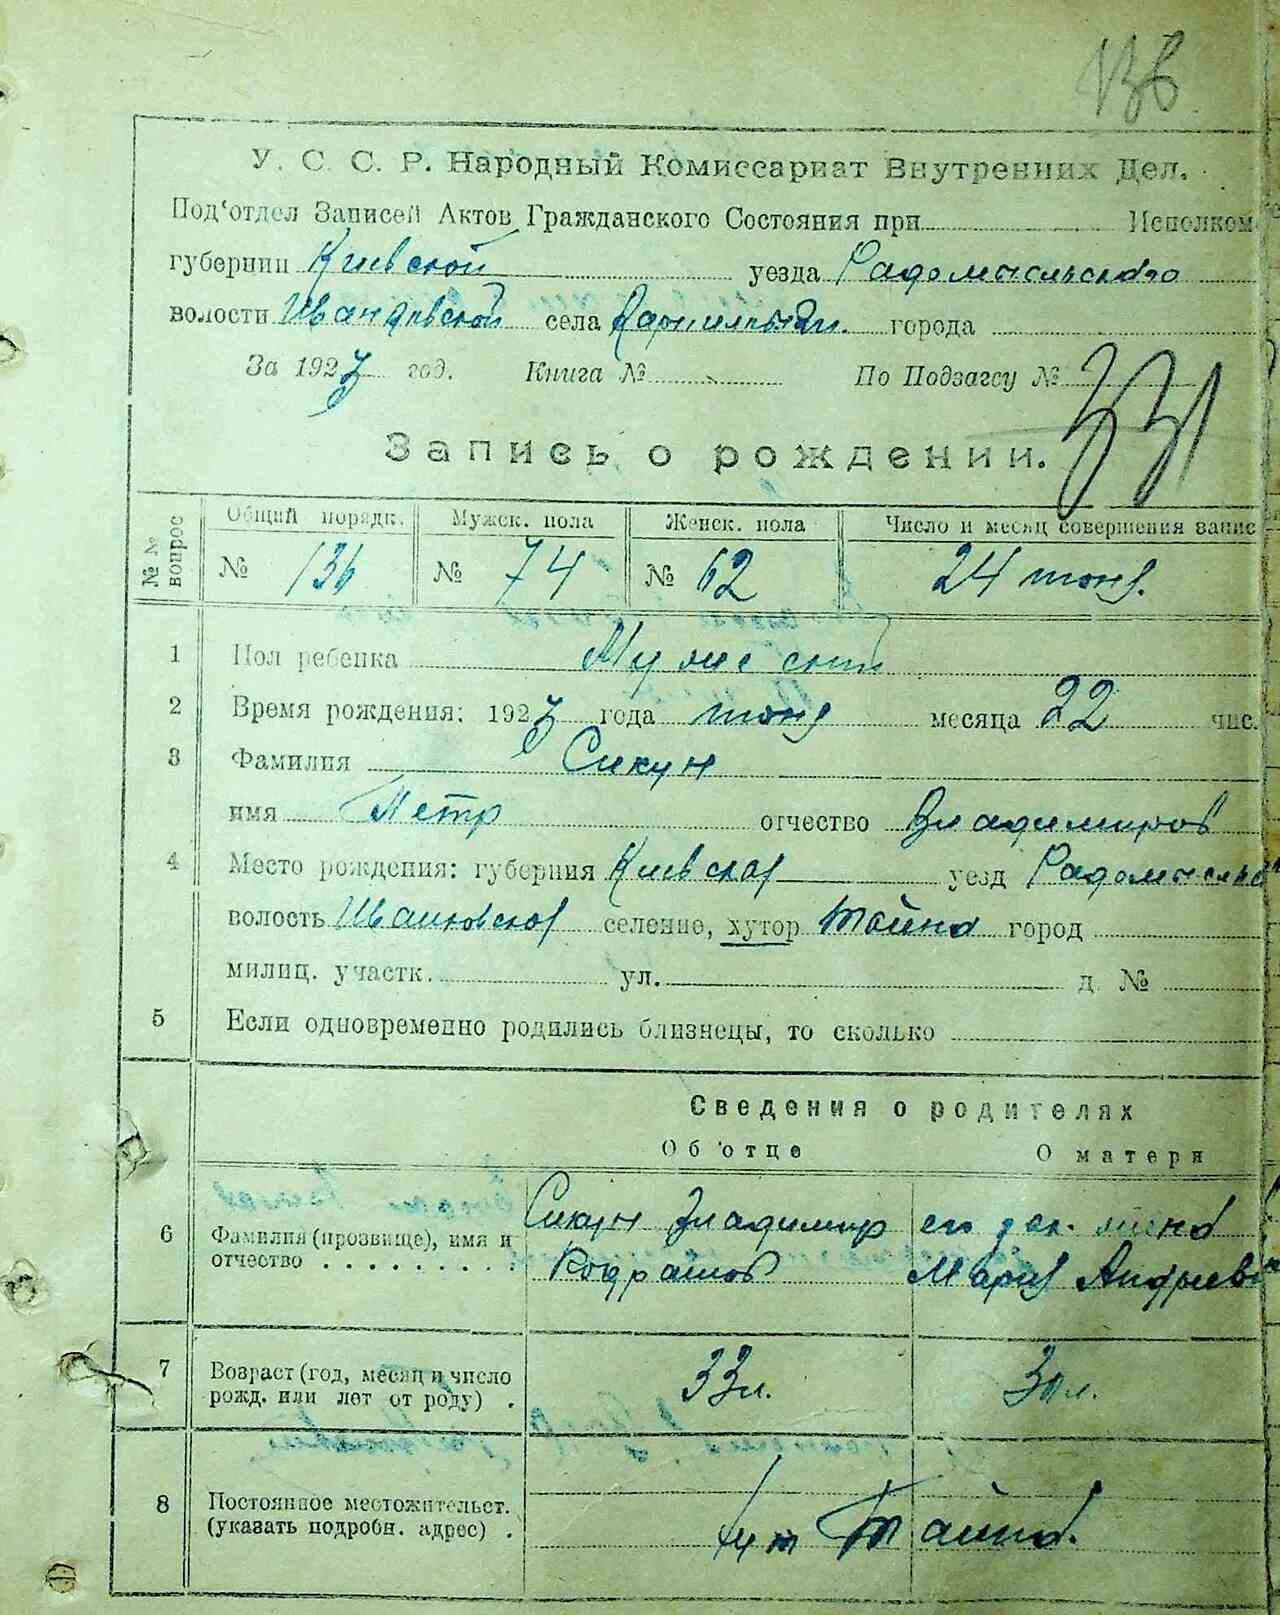 136
У. С. С. Р. Народный Комиссариат Внутренних Дел.
Под'отдел Записей Актов Гражданского Состояния при Исполком
губернии Киевской уезда Радомысльского
волости села города
За 1923 год. Книга № По Подзагсу № 331
Запись о рождении.
№ № вопрос Общий порядк. Мужск. пола Женск. пола Число и месяц совершения запис
№ 136 № 74 № 62 24 июня
1 Пол ребенка Мужеский
2 Время рождения: 1923 года июня месяца 22 чис.
3 Фамилия Сикун
имя Петр отчество Владимиров
4 Место рождения: губерния Киевская уезд Радомысльс
волость Иванковская селение, хутор город
милиц. участк. ул. д. №
5 Если одновременно родились близнецы, то сколько
Сведения о родителях
Об отце О матери
6 Фамилия (прозвище), имя и Сикун Владимир его зак. жена
отчество Кодратов Мария Андриев
7 Возраст (год, месяц и число 33 л. 30 л.
рожд. или лет от роду) .
8 Постоянное местожительст.
(указать подробн. адрес) . хут